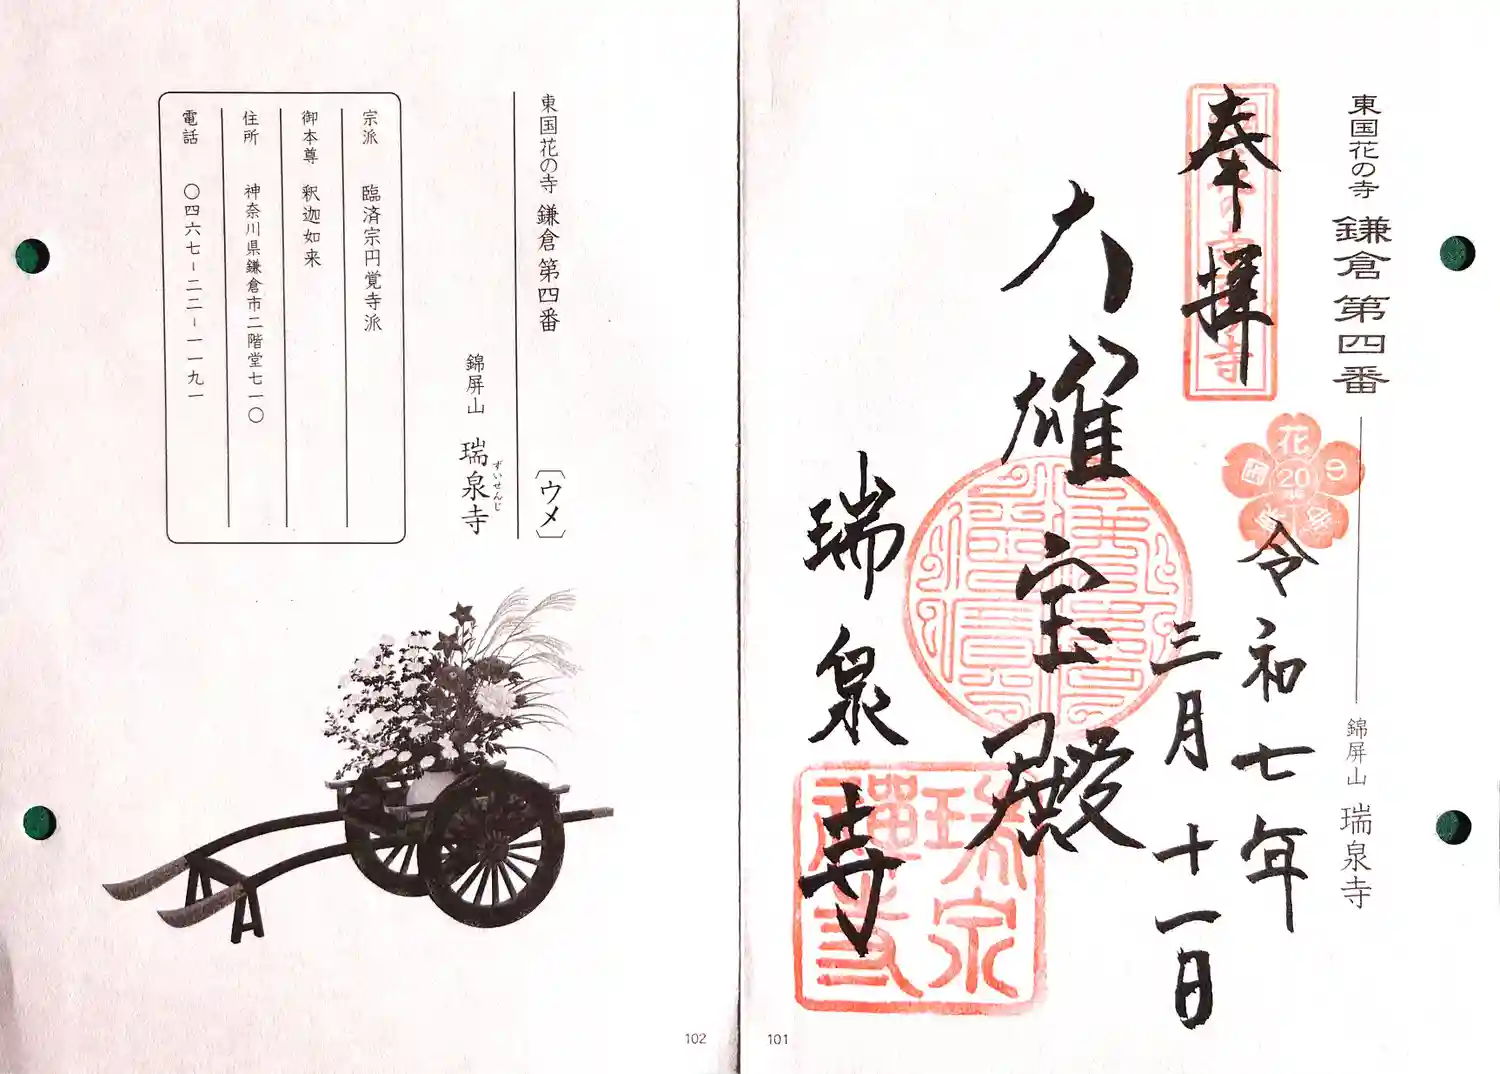 東国花の寺 鎌倉 第四番
錦屏山 瑞泉寺
奉拝
花
20
令和七年
三月十一日
大雄宝殿
瑞泉寺
101
東国花の寺 鎌倉 第四番
〔ウメ〕
錦屏山 瑞泉寺
ずいせんじ
宗派 臨済宗円覚寺派
御本尊 釈迦如来
住所 神奈川県鎌倉市二階堂七一〇
電話 〇四六七-二二-一一九一
102